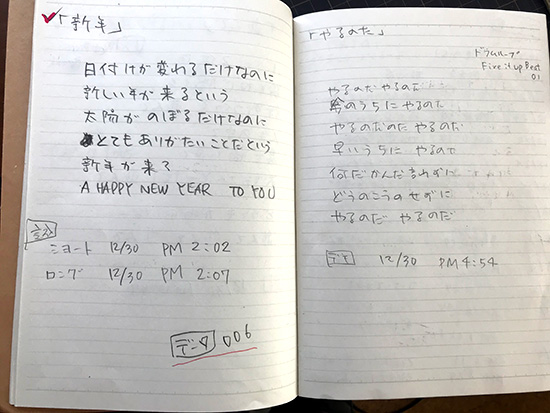 「新年」
日付けが変わるだけなのに
新しい年が来るという
太陽がのぼるだけなのに
とてもありがたいことだという
新年が来て
A HAPPY NEW YEAR TO YOU
ショート 12/30 PM 2:02
ロング 12/30 PM 2:07
データ 006
「やるのだ」
ドラムループ
Fire it up Beat
01
やるのだ やるのだ
今のうちに やるのだ
やるのだのだ やるのだ
早いうちに やるのだ
何だかんだ言わずに
どうのこうのせずに
やるのだ やるのだ
デモ 12/30 PM 4:54